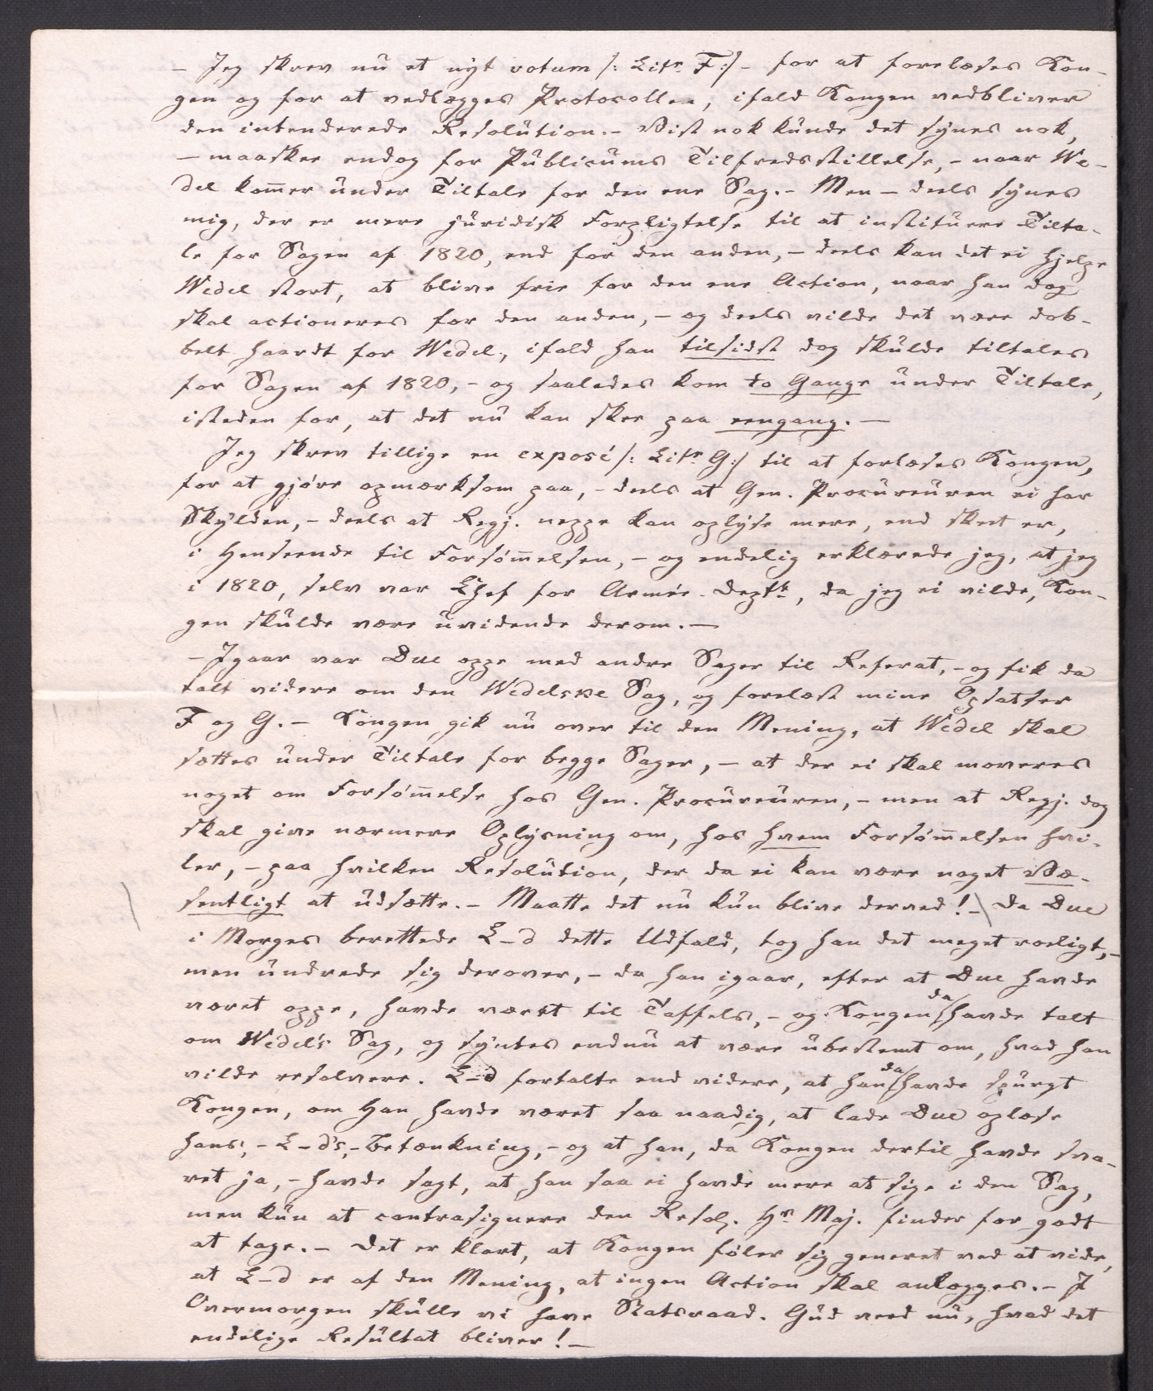 – Jeg skrev nu et nyt votum /: Litr. F:/ – for at forelæses Kon-
gen og for at vedlægges Protocollen, ifald Kongen vedbliver
den intenderede Resolution. – Vist nok kunde det synes nok,
– maaskee endog for Publicums Tilfredsstillelse, – naar We-
del kom̅er under Tiltale for den ene Sag. – Men – deels synes
mig, der er mere juridisk Forpligtelse til at instituere Tilta-
le for Sagen af 1820, end for den anden, – deels kan det ei hjelpe
Wedel stort, at blive frie for den ene Action, naar han dog
skal actioneres for den anden, – og deels vilde det være dob-
belt haardt for Wedel, ifald han tilsidst dog skulde tiltales
for Sagen af 1820, – og saaledes kom to Gange under Tiltale,
isteden for, at det nu kan skee paa eengang. –
Jeg skrev tillige en exposé /: Litr. G:/ til at forlæses Kongen,
for at gjøre opmærksom paa, – deels at Gen. Procureuren ei har
Skylden, – deels at Regj. neppe kan oplyse mere, end skeet er,
i Henseende til Forsøm̅elsen, – og endelig erklærede jeg, at jeg
i 1820, selv var Chef for Armée-Deptt., da jeg ei vilde, Kon-
gen skulde være uvidende derom. –
– Igaar var Due oppe med andre Sager til Referat, – og fik da
talt videre om den Wedelske Sag, og forelæst mine Opsatser
F og G. – Kongen gik nu over til den Mening, at Wedel skal
sættes under Tiltale for begge Sager, – at der ei skal moveres
noget om Forsøm̅else hos Gen. Procureuren, – men at Regj. dog
skal give nærmere Oplysning om, hos hvem Forsøm̅elsen hvi-
ler, – paa hvilken Resolution, der da ei kan være noget Væ-
sentligt at udsætte. – Maatte det nu kun blive derved! – Da Due
i Morges berettede L–d dette Udfald, tog han det meget roeligt, –
men undrede sig derover, – da han igaar, efter at Due havde
været oppe, havde været til Taffels, – og Kongen da havde talt
om Wedels Sag, og syntes endnu at være ubestemt om, hvad han
vilde resolvere. L–d fortalte end videre, at han da havde spurgt
Kongen, om Han havde været saa naadig, at lade Due oplæse
hans, – L–ds, – Betænkning, – og at han, da Kongen dertil havde sva-
ret ja, – havde sagt, at han saa ei havde mere at sige i den Sag,
men kun at contrasignere den Resol. Hs. Maj. finder for godt
at tage. – Det er klart, at Kongen føler sig generet ved at vide,
at L–d er af den Mening, at ingen Action skal anlægges. – I
Overmorgen skulle vi have Statsraad. Gud veed nu, hvad det
endelige Resultat bliver! –